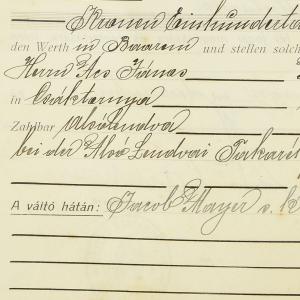 Kronen Einhunderte
den Werth in Baarem und stellen solch
Herrn Acs János
in Csáktornya
Zahlbar Alsólendva
bei der Alsó Lendvai Takaré
A váltó hátán: Jacob Mayer s. k.